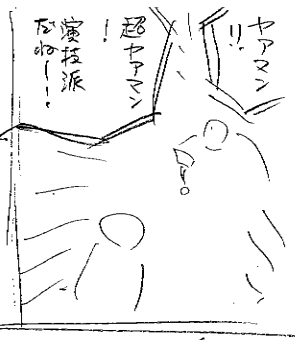 ヤアマン
!!
超ヤアマン
!
演技派
だねー!
!